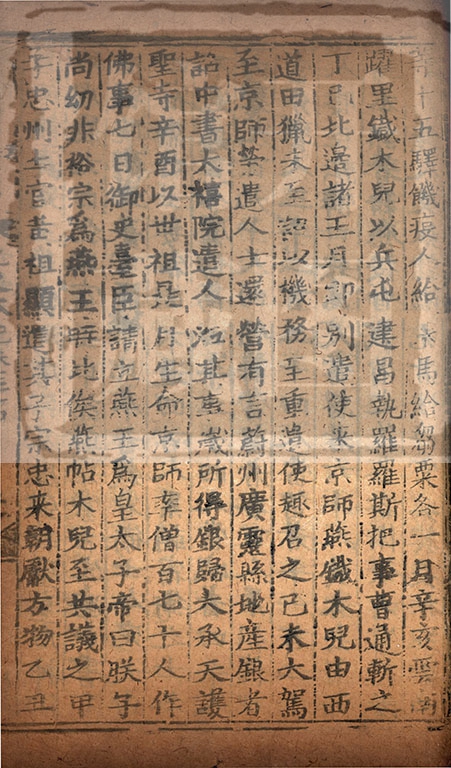 等十五驛饑疫人給馬給芻粟各一月辛亥雲南
躍里鐵木兒以兵屯建昌執羅羅斯把事曹通斬之
丁巳北邊諸王月即別遣使來京師燕鐵木兒由西
道田獵未至詔以機務至重遣使趣召之己未大駕
至京師勞遣人士還營有言蔚州廣靈縣地產銀者
詔中書太禧院遣人其事歲所得銀歸大承天護
聖寺辛酉以世祖是月生命京師率僧百七十人作
佛事七日御史臺臣請立燕王為皇太子帝曰朕子
尚幼非裕宗為燕王時比俟燕帖木兒至共議之甲
子忠州土官黃祖顯遣其子宗忠來朝獻方物乙丑